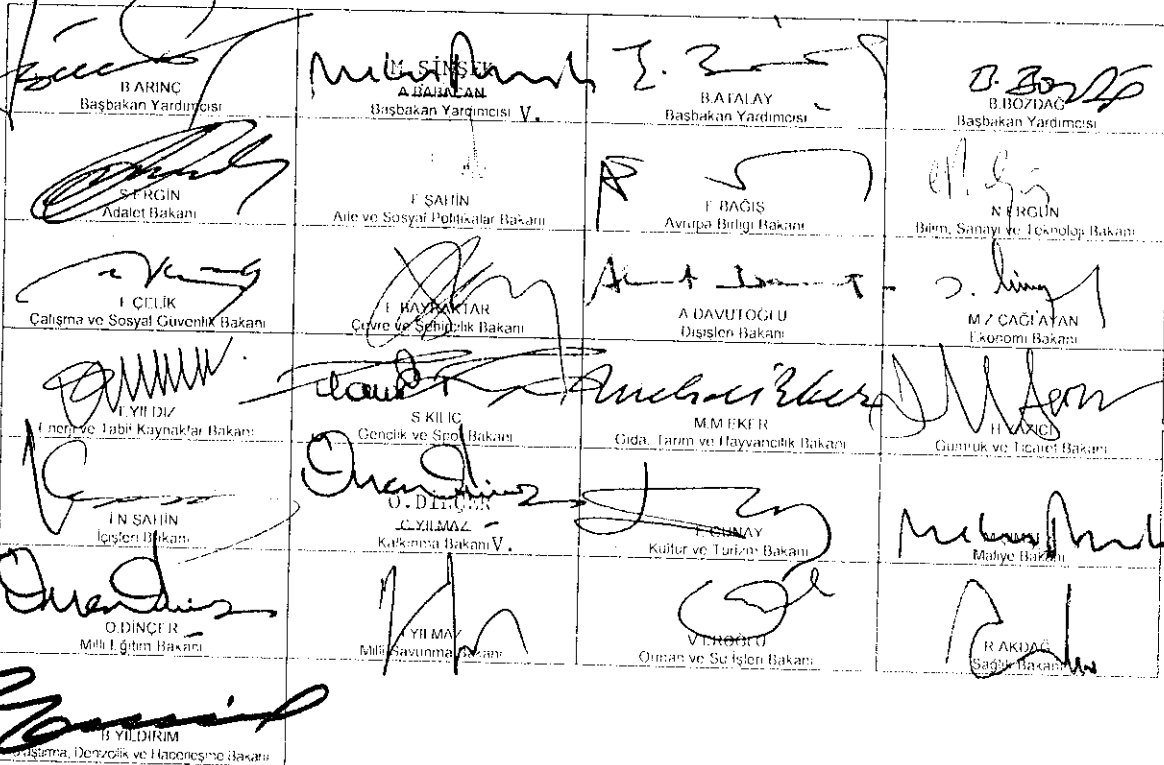 B.ARINÇ
Başbakan Yardımcısı
M.ŞİMŞEK
A.BABACAN
Başbakan Yardımcısı V.
B.ATALAY
Başbakan Yardımcısı
B.BOZDAĞ
Başbakan Yardımcısı
S.ERGİN
Adalet Bakanı
F.ŞAHİN
Aile ve Sosyal Politikalar Bakanı
E.BAĞIŞ
Avrupa Birliği Bakanı
N.ERGÜN
Bilim, Sanayi ve Teknoloji Bakanı
F.ÇELİK
Çalışma ve Sosyal Güvenlik Bakanı
E.BAYRAKTAR
Çevre ve Şehircilik Bakanı
A.DAVUTOĞLU
Dışişleri Bakanı
M.Z.ÇAĞLAYAN
Ekonomi Bakanı
T.YILDIZ
Enerji ve Tabii Kaynaklar Bakanı
S.KILIÇ
Gençlik ve Spor Bakanı
M.M.EKER
Gıda, Tarım ve Hayvancılık Bakanı
H.YAZICI
Gümrük ve Ticaret Bakanı
İ.N.ŞAHİN
İçişleri Bakanı
Ö.DİNÇER
C.YILMAZ
Kalkınma Bakanı V.
E.GÜNAY
Kültür ve Turizm Bakanı
Maliye Bakanı
Ö.DİNÇER
Milli Eğitim Bakanı
İ.YILMAZ
Milli Savunma Bakanı
V.EROĞLU
Orman ve Su İşleri Bakanı
R.AKDAĞ
Sağlık Bakanı
B.YILDIRIM
Ulaştırma, Denizcilik ve Haberleşme Bakanı